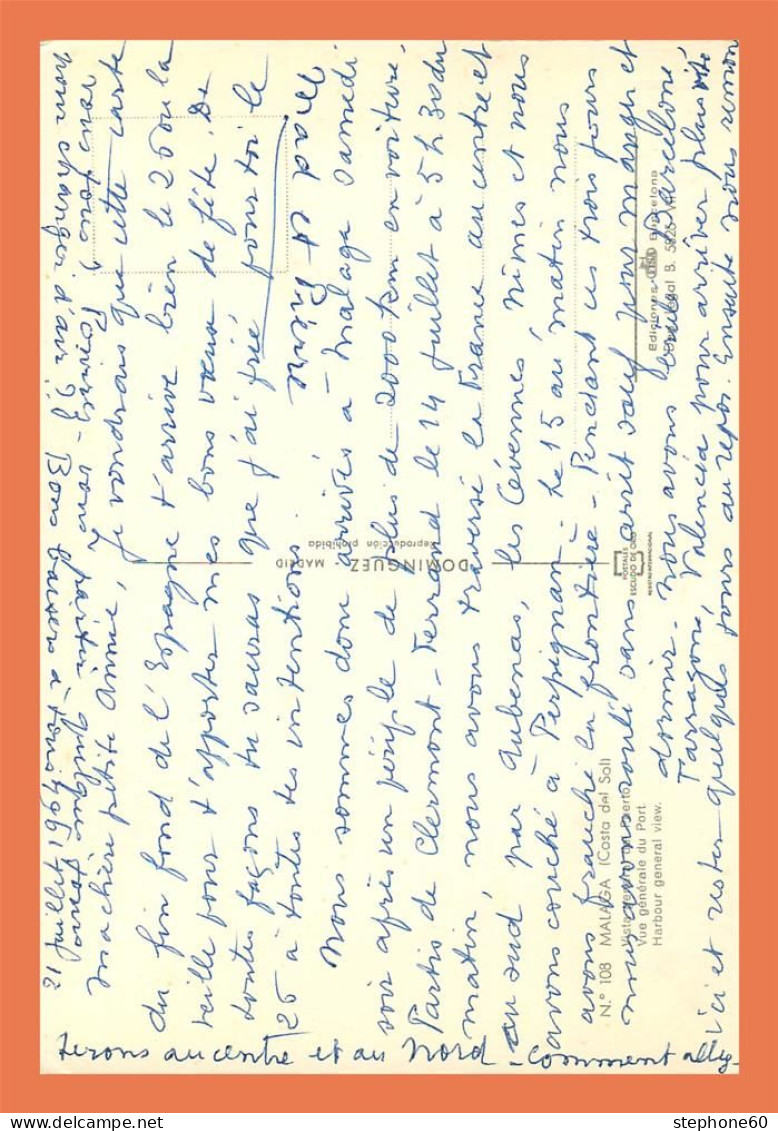 21 juillet 1964
Ma chère petite Annie, je voudrais que cette carte
du fin fond de l'Espagne t'arrive bien le 26 ou la
veille pour t'apporter mes bons vœux de fête. De
toutes façons tu sauras que j'ai prié pour toi le
26 à toutes tes intentions.
Nous sommes donc arrivés à Malaga samedi
soir après un périple de plus de 2000 km en voiture.
Partis de Clermont-Ferrand le 14 juillet à 5h30 du
matin, nous avons traversé la France au centre et
au sud par Aubenas, les Cévennes, Nîmes et nous
avons couché à Perpignan. Le 15 au matin nous
avons franchi la frontière - Pendant ces trois jours
nous avons roulé sans arrêt sauf pour manger et
dormir. Nous avons évité Barcelone,
Tarragone, Valencia pour arriver plus vite
ici et rester quelques jours au repos. Ensuite nous remon
terons au centre et au Nord - Comment allez-
vous
partir quelques
pour changer d'air ? Bons baisers à tous
N.º 108 MALAGA (Costa del Sol)
Vista general del Puerto
Vue générale du Port
Harbour general view.
DOMINGUEZ MADRID
Reproducción prohibida
POSTALES
ESCUDO DE ORO
Ediciones Barcelona
stephone60